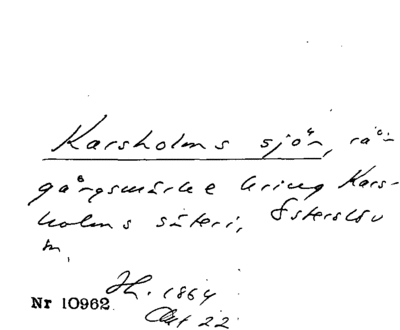 Karsholms sjön, rå-
gångsmärke kring Kars-
holms säteri, Österslöv
sn,
Hl. 1864
Akt 22
Nr 10962